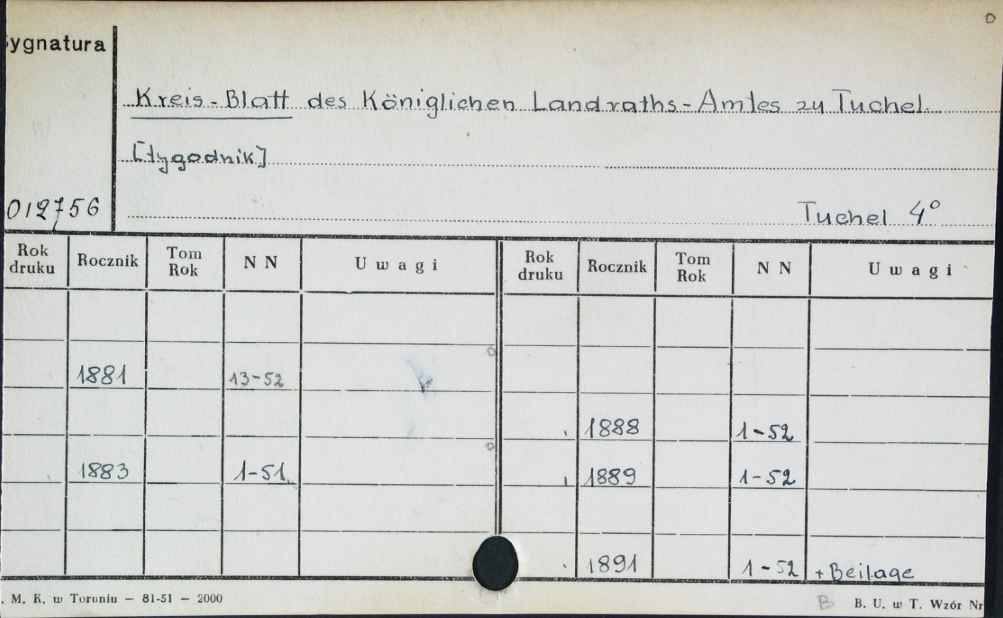 Sygnatura
Kreis-Blatt des Königlichen Landraths-Amtes zu Tuchel.
[tygodnik]
012756
Tuchel 4°
Rok druku Rocznik Tom Rok N N Uwagi Rok druku Rocznik Tom Rok N N Uwagi
1881 13-52
1888 1-52
1883 1-51
1889 1-52
1891 1-52 + Beilage
. M. K. w Toruniu — 81-51 — 2000
B
B. U. w T. Wzór Nr